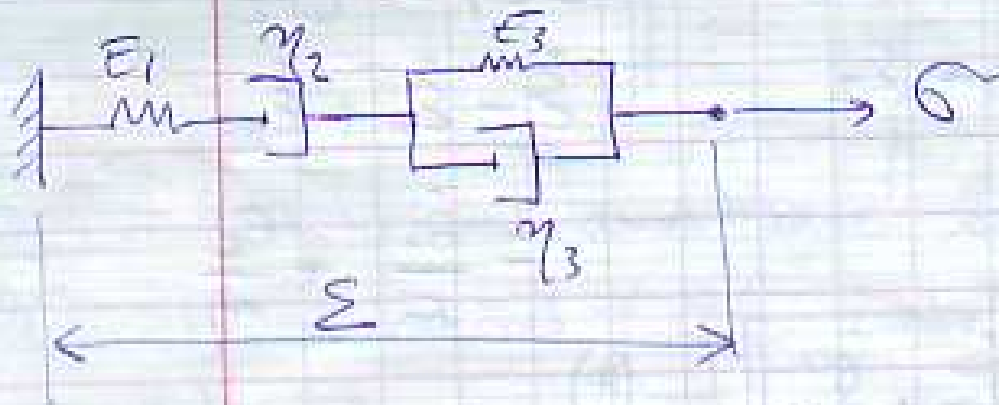 E₁ η₂ E₃ σ
η₃
ε